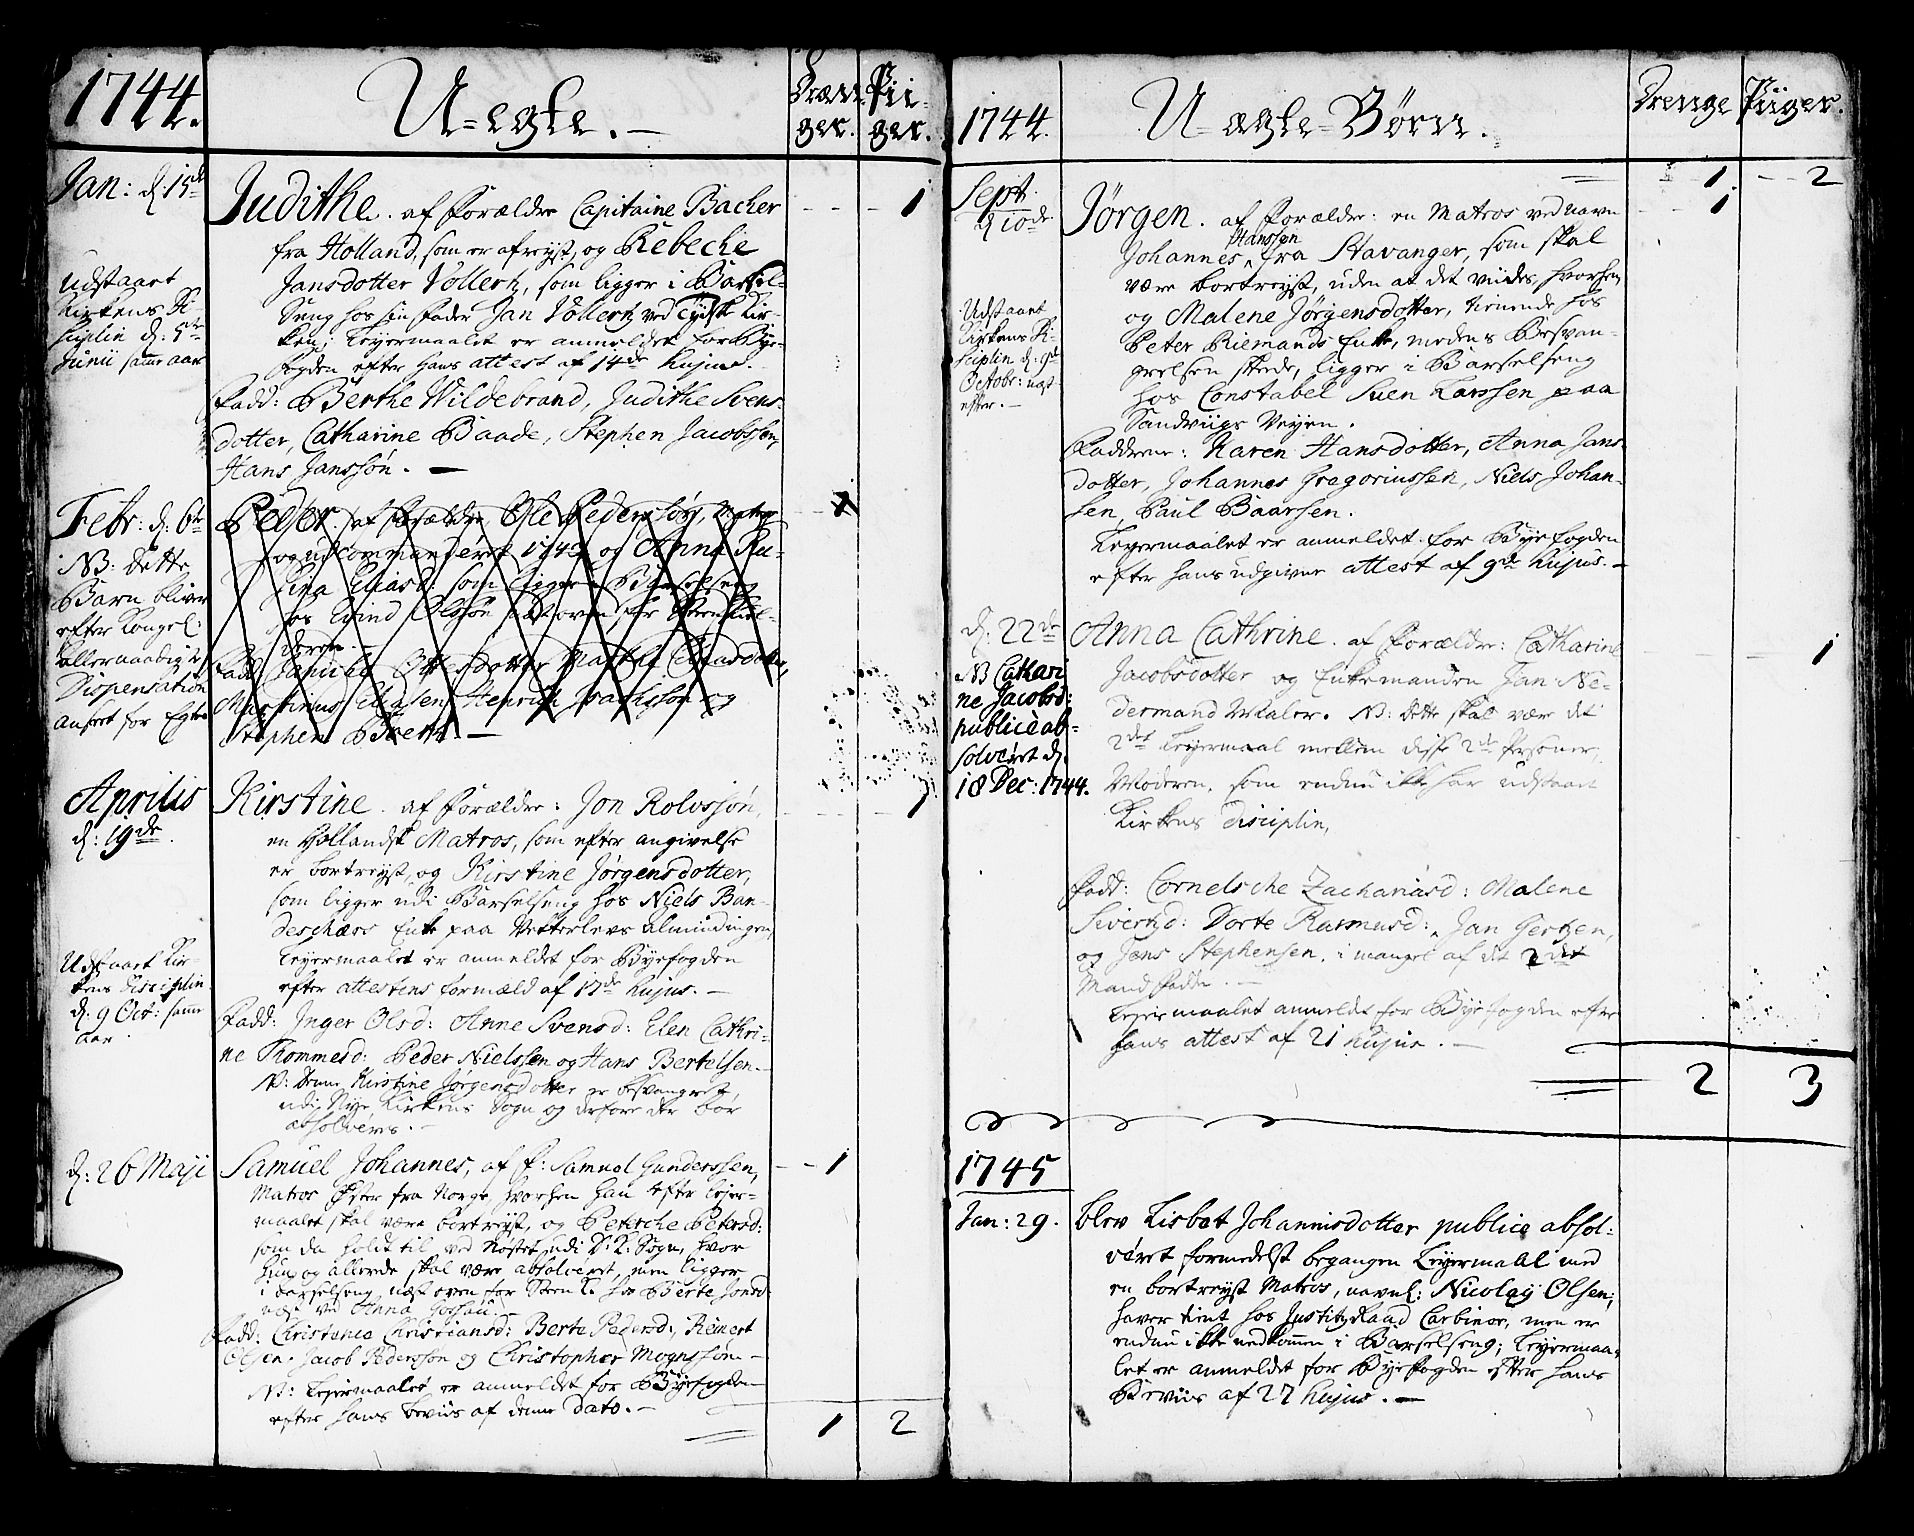 1744.
U=egte. —
Dræn-
ger.
Pii-
ger.
Jan: d. 15de
Judithe. af Forældre Capitaine Bacher
- - - 1
fra Holland, som er afreyst, og Rebeche
Jansdotter Vollertz, som ligger i Barsel-
Seng hos sin Fader Jan Vollertz ved Tydsk Kir-
ken; Leyermaalet er anmeldet for Bye-
fogden efter hans attest af 14de hujus.
udstaaet
Kirkens Di-
siplin d. 5te
Junii samme aar
Fadd: Berthe Wildebrand, Judithe Svens-
dotter, Catharine Baade, Stephen Jacobssen,
Hans Janssøn. —
Febr: d. 6te
Peder. af Forældre Ole Pederssøn, Matros
1
udcommanderet 1743 og Anna Ru-
fina Eliasd: som ligger i Barselseng
hos Eivind Olssøn næst oven for Steenkiel-
deren.
Fadd: Samuel Ottesdotter Marthe Eliasdotter,
Martinus Eliasen, Henrich Isachssøn og
Stephen Brem. —
NB: Dette
Barn bliver
efter Kongel:
allernaadigste
Dispensation
anført for Egte
Aprilis
d. 19de.
Kirstine. af Forældre: Jon Rolvssøn,
1
en Hollandsk Matros, som efter angivelse
er bortreyst, og Kirstine Jørgensdotter,
som ligger udi Barselseng hos Niels Ban-
deschærs Enke paa Vetterlevs almindingen,
Leyermaalet er anmeldet for Byefogden
efter attestens formæld af 17de hujus. —
Udstaaet Kir-
kens Disciplin.
d. 9 Oct: samme
aar.
Fadd: Inger Olsd: Anne Svensd: Elen Cathri-
ne Trommesd: Peder Nielssen og Hans Bertelsen. —
NB: Denne Kirstine Jørgensdotter er besvangret
udi Nye Kirkens Sogn og derfore der bør
absolveres. —
d. 26 Maji
Samuel Johannes, af F: Samuel Gunderssen,
- - 1
Matros Øster fra Norge, hvorhen han efter leyer-
maalet skal være bortreyst, og Petersche Petersd:
som da holdt til ved Nøstet udi D: K: Sogn, hvor
hun og allerede skal være absolveret, men ligger
i barselseng næst oven for Steen K. hos Berte Jonsd:
næst ved Anna
Fadd: Christence Christiansd: Berte Pedersd:, Reinert
Olsen. Jacob Pederssøn og Christopher Mognssøn —
NB: Leyermaalet er anmeldet for Byefogden
efter hans beviis af denne dato. —
1 2
1744.
U=ægte=Børn.
Drenge
Piiger.
1. - - 2
Sept.
d. 10de
Jørgen. af Forældre: en Matros ved navn
- 1
Hanssen
Johannes fra Stavanger, som skal
være bortreyst, uden at det viides, hvorhen,
og Malene Jørgensdotter, tienende hos
Peter Riemands Enke, medens Besvan-
grelsen skede, ligger i Barselseng
hos Constabel Suen Larssen paa
Sandviigs Veyen.
Udstaaet
Kirkens Di-
sciplin d. 9de
Octobr: næst-
efter. —
Fadderne: Karen Hansdotter, Anna Jans-
dotter, Johannes Gregoriussen, Niels Johan-
sen, Paul Baarsen.
Leyermaalet er anmeldet for Byefogden
efter hans udgivne attest af 9de hujus. —
d. 22de
Anna Cathrine. af Forældre: Catharine
1
Jacobsdotter og Enkemanden Jan Ne-
dermand Maler. NB: dette skal være det
2det Leyermaal mellem disse 2de Personer,
Moderen, som endnu ikke har udstaaet
Kirkens disciplin,
NB Cathari
ne Jacobsd:
publice ab-
solveret d.
18 Dec: 1744.
Fadd: Cornelsche Zachariasd: Malene
Sivertzd: Dorte Rasmusd:, Jan Gertzen,
og Jens Stephensen, i mangel af det 2det
Mand Fadder. —
Leyermaalet anmeldt for Byefogden efter
hans attest af 21 hujus. —
2 3
1745
Jan: 29.
blev Lisbet Johannisdotter publice absol-
veret formedelst begangen Leyermaal med
en bortreyst Matros, navnl: Nicolay Olsen;
haver tient hos Justitz Raad Carbiner, men er
endnu ikke nedkommen i Barselseng; Leyermaa-
let er anmeldet for Byefogden efter hans
Beviis af 27 hujus. —